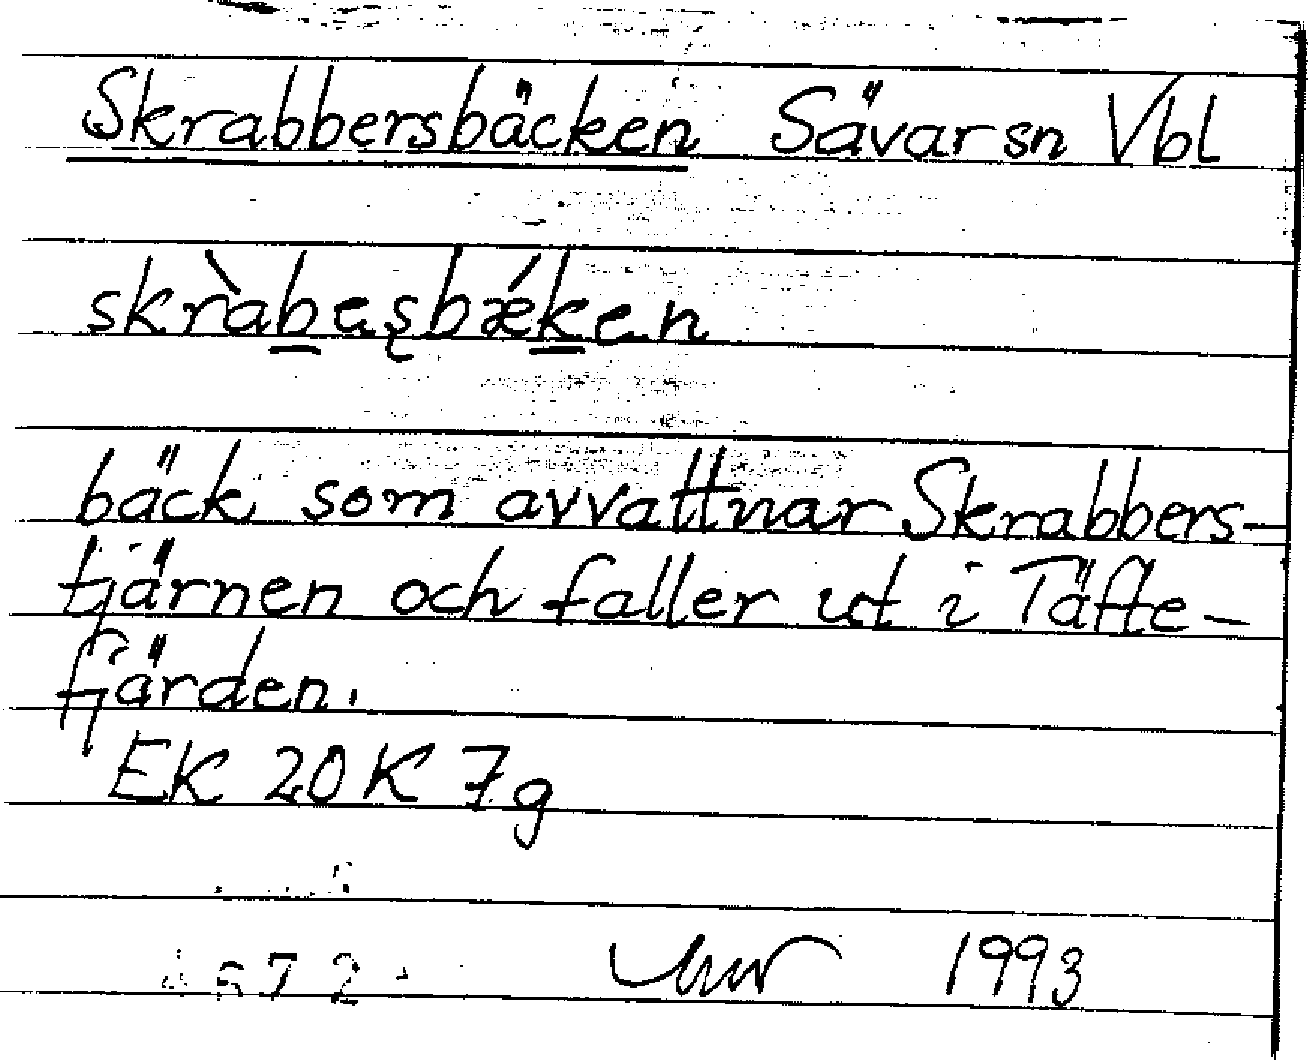 Skrabbersbäcken Sävar sn Vbl
skràbesbǽken
bäck som avvattnar Skrabbers-
tjärnen och faller ut i Täfte-
fjärden.
EK 20K 7g
672
1993